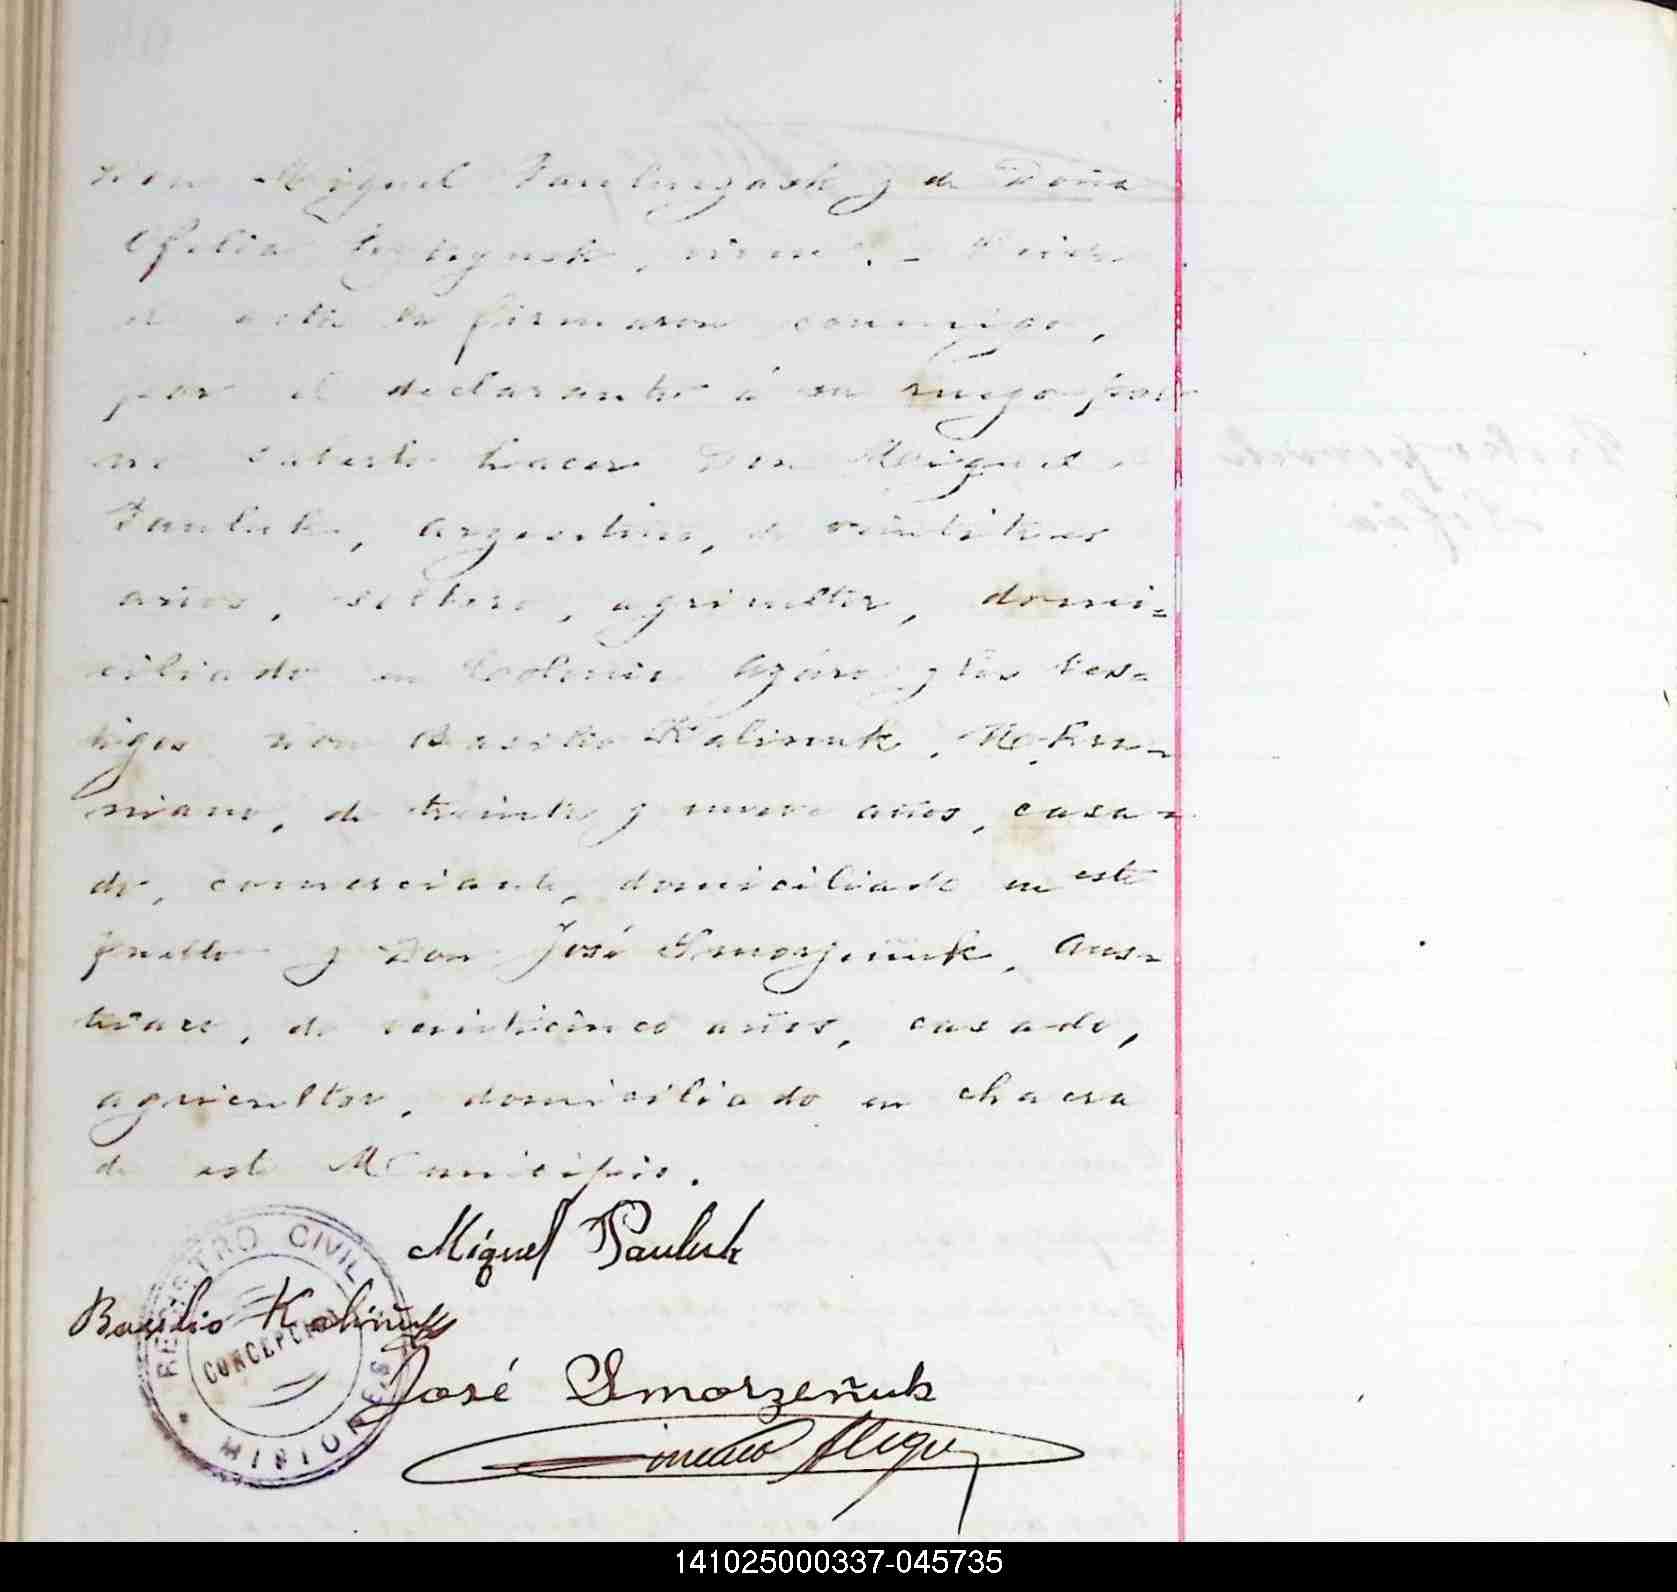 Don Miguel y de Doña
Ofelia
el acta la firmaron conmigo,
por el declarante á su ruego por
no saberlo hacer Don Miguel
Pauluk, argentino, de veintitres
años, soltero, agricultor, domi=
ciliado en Colonia Azára y los tes=
tigos Don Basilio Kalinuk,
de treinta y nueve años, casa=
do, comerciante, domiciliado en este
pueblo y Don José Smorzeñuk, Aus=
triaco, de veinticinco años, casado,
agricultor, domiciliado en chacra
de este Municipio.
Miguel Pauluk
Basilio Kaliñuk
José Smorzeñuk
REGISTRO CIVIL
CONCEPCION
MISIONES
141025000337-045735